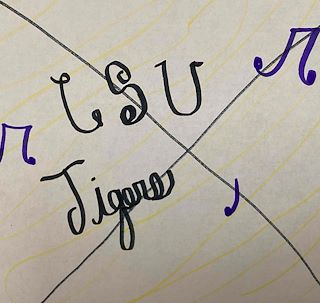 LSU
Tigers